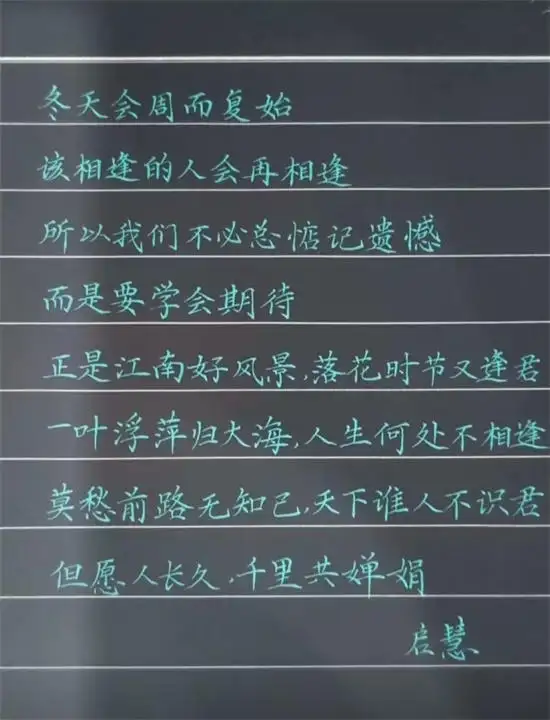 冬天会周而复始
该相逢的人会再相逢
所以我们不必总惦记遗憾
而是要学会期待
正是江南好风景,落花时节又逢君
一叶浮萍归大海,人生何处不相逢
莫愁前路无知己,天下谁人不识君
但愿人长久,千里共婵娟
启慧